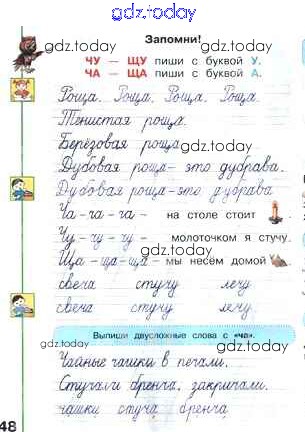 gdz.today gdz.today
Запомни!
ЧУ — ЩУ пиши с буквой У.
ЧА — ЩА пиши с буквой А.
Роща. Роща. Роща. Роща.
Тенистая роща.
Берёзовая роща.
gdz.today
Дубовая роща – это дубрава.
Дубовая роща – это дубрава
Ча – ча – ча – на столе стоит
gdz.today
Чу – чу – чу – молоточком я стучу.
Ща – ща – ща – мы несём домой
gdz.today
свеча стучу лечу
свеча стучу лечу
gdz.today
Выпиши двусложные слова с «ча».
Чайные чашки в печали,
Стуча и бренча, закричали.
gdz.today
чашки стуча бренча
48